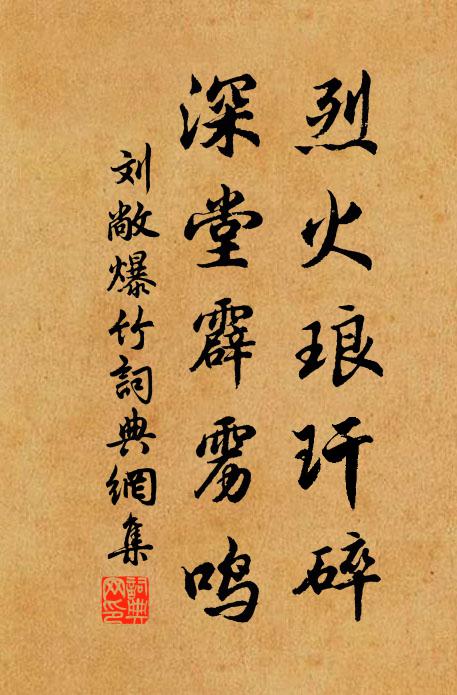 烈火琅玕碎
深堂霹雳鸣
刘敞爆竹詞典網集
詞典
网印